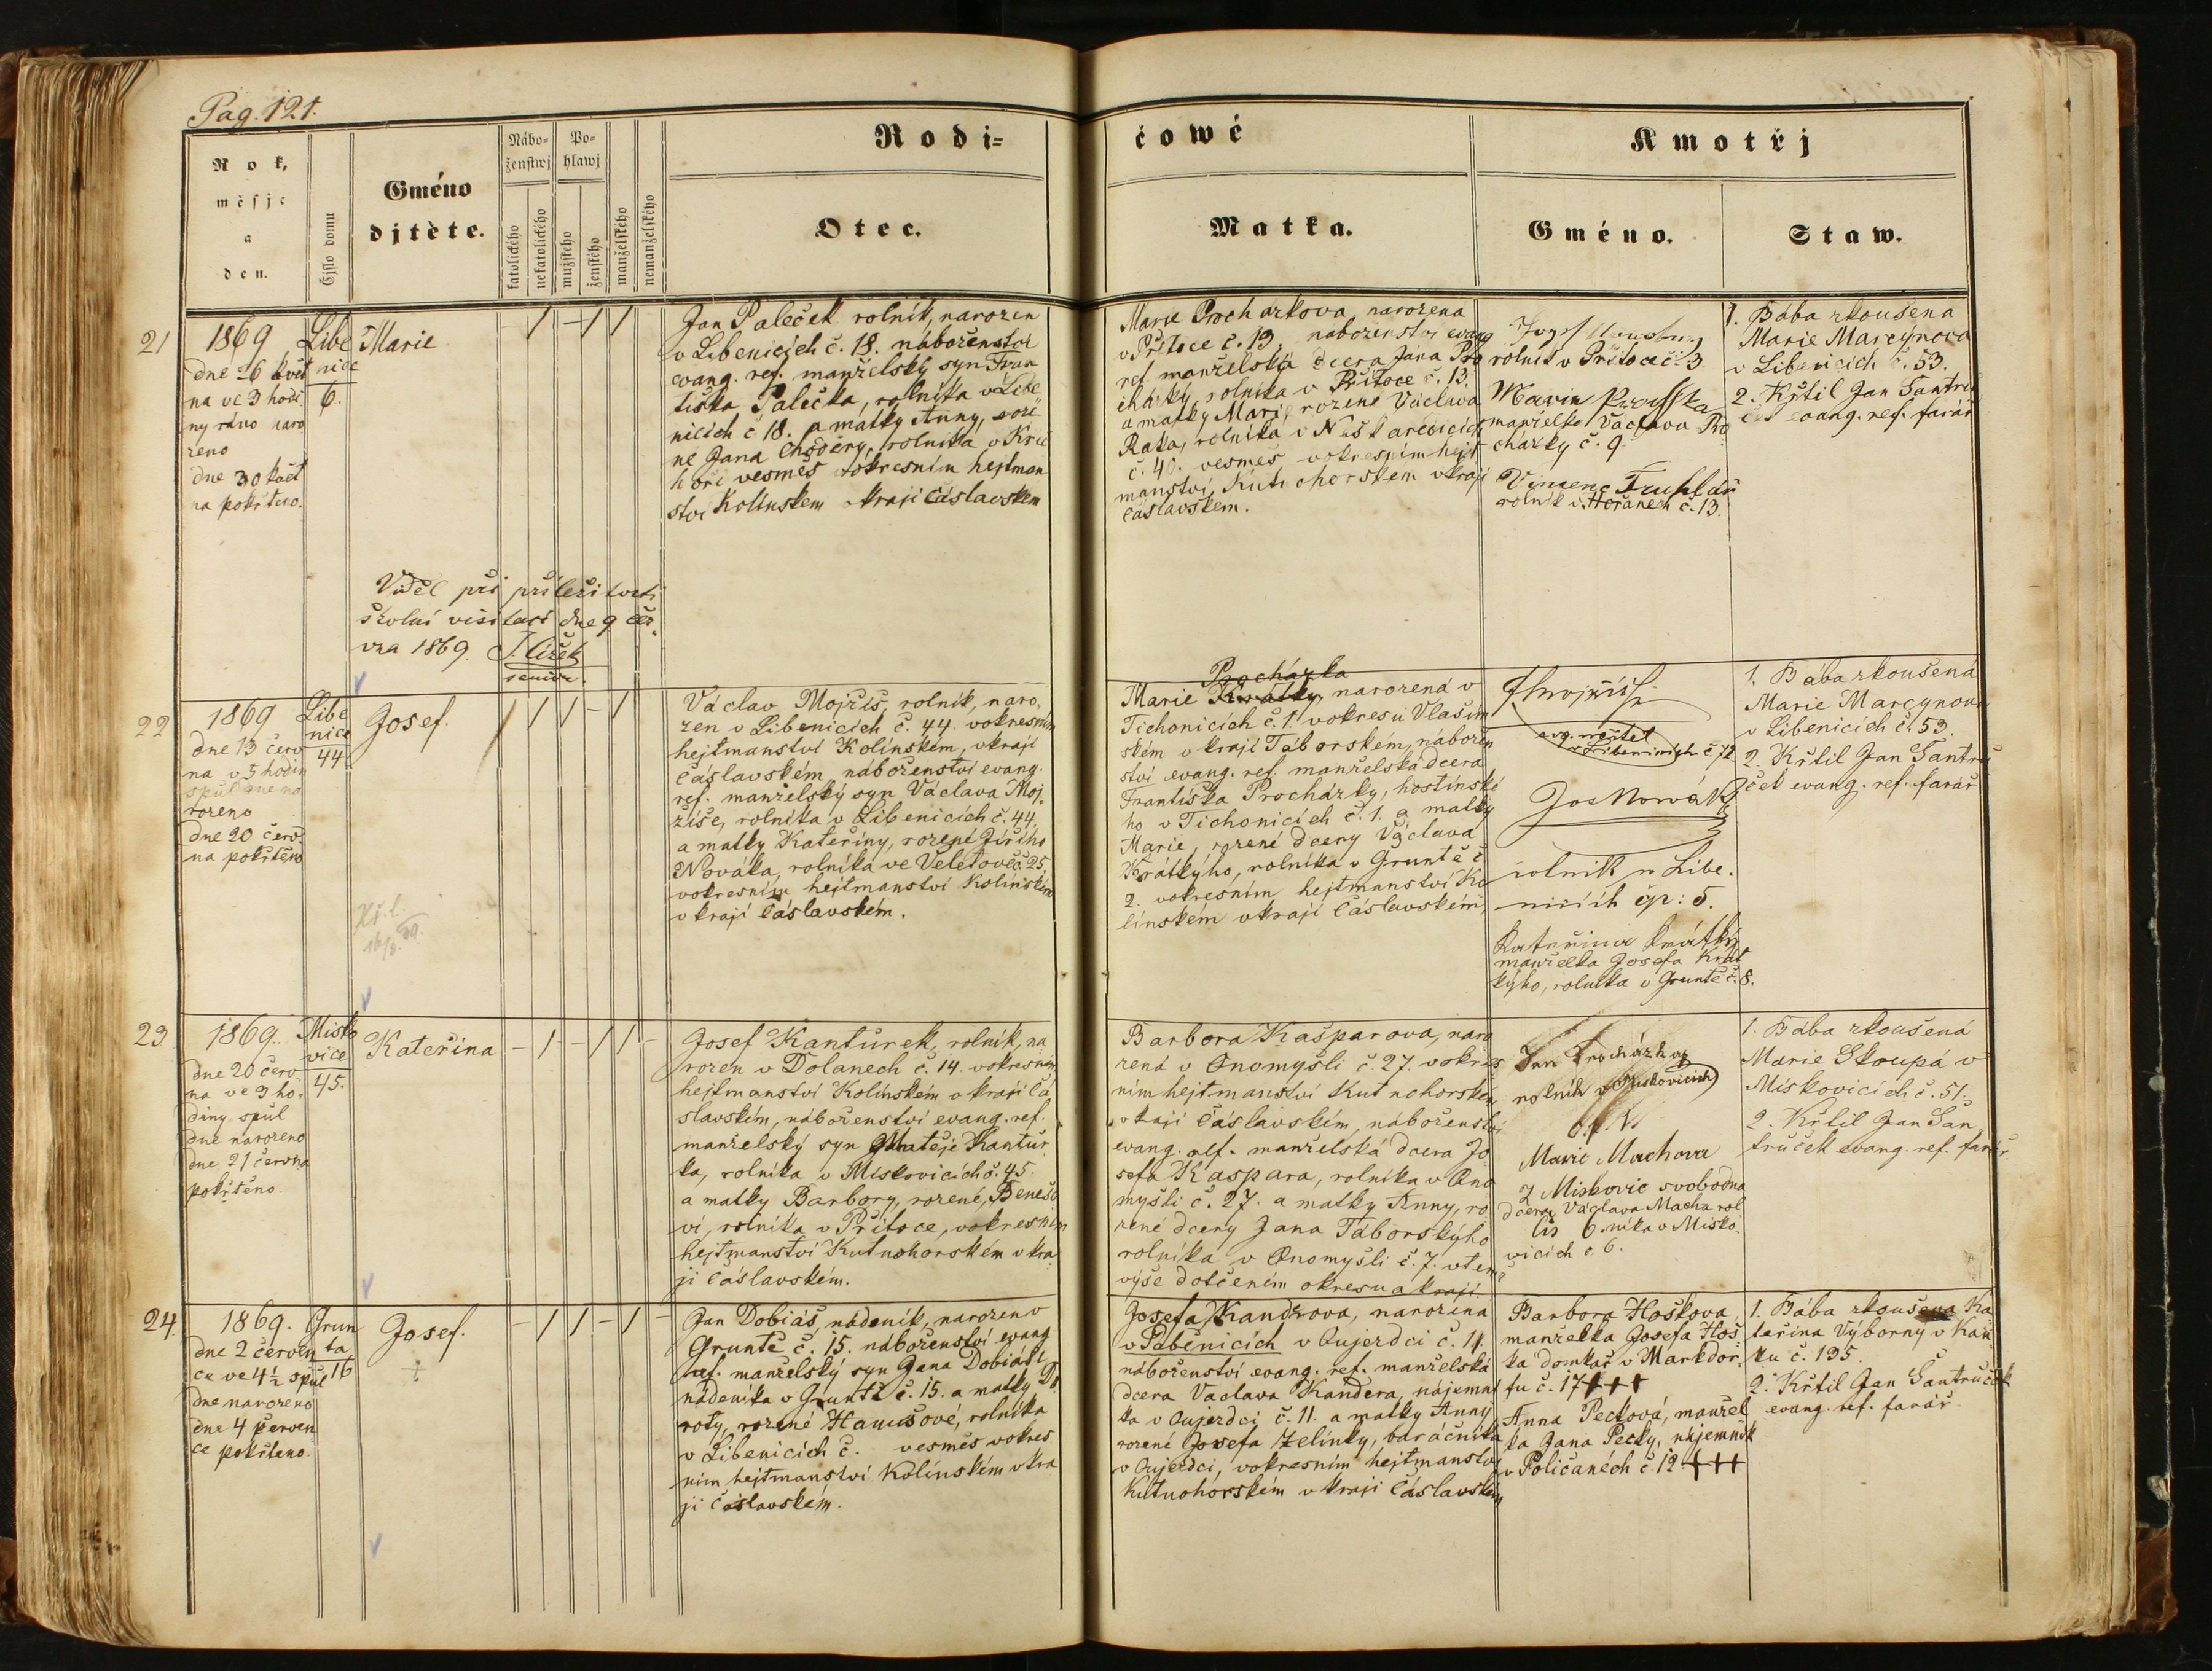 Pag. 121.
Rok,
měsjc
a
den.
Čjslo domu
Gméno
djtěte.
Nábo-
ženstwj
katolického
nekatolického
Po-
hlawj
mužského
ženského
manželského
nemanželského
Rodi-
čowé
Otec.
Matka.
Kmotřj
Gméno.
Staw.
21
1869
dne 26 květ
na ve 3 hodi
ny ráno naro
zeno
dne 30 květ
na pokřteno.
Libe
nice
6.
Marie
Jan Paleček rolník, narozen
v Libenicích č. 18. náboženství
evang. ref. manželský syn Fran
tiška Palečka, rolníka v Libe
nicích č 18. a matky Anny, roze
né Jana Chodery, rolníka v Kře
hoři vesměs v okresním hejtman
ství Kolínskem kraji Čáslavskem
Marie Procházkova, narozena
v Přítoce č. 13, naboženství evang
ref manželská dcera Jana Pro
chazky, rolníka v Přítoce č. 13.
a matky Marie rozené Václava
Rata, rolníka v Neškaredicích
č. 40. vesmes v okresním hejt
manství Kutnohorském v kraji
Čáslavském.
rolník v Přítoce č. 3
manželka Václava Pro
cházky č. 9.
Vincenc Truhlář
rolník v Hořanech č. 13.
1. Bába zkoušena
Marie Marcýnova
v Libenicích č. 53.
2. Křtil Jan Šantrů
ček evang. ref. farář
Viděl při příležitosti
školní visitací dne 9 čer
vna 1869. J. Cížek
senior.
22
1869
dne 13 červ
na v 5 hodin
spůl dne na
rozeno
dne 20 červ
na pokřtěno
Libe
nice
44
Josef.
Kř. l.
16/8. 89.
Václav Mojžíš, rolník, naro,
zen v Libenicích č. 44. v okresním
hejtmanství Kolínském, v kraji
Čáslavském náboženství evang.
ref. manželský syn Václava Moj,
žíše, rolníka v Libenicích č. 44.
a matky Kateřiny, rozené Jiřího
Nováka, rolníka ve Veletově č. 25.
v okresním hejtmanství Kolínském
v kraji Čáslavském.
Procházka
Marie Krátky, narozená v
Tichonicích č. 1. v okresu Vlašim
ském v kraji Táborském, nábožen
ství evang. ref. manželská dcera
Františka Procházky, hostinské
ho v Tichonicích č. 1. a matky
Marie, rozené dcery Václava
Krátkýho, rolníka v Gruntě č
2. v okresním hejtmanství Ko
línském v kraji Čáslavském,
v Libenicích č. 12
Jos Nowák
rolník v Libe.
nicích čp: 5.
Kateřina Krátký
manželka Josefa Krát
kýho, rolníka v Gruntě č. 8.
1. Bába zkoušená
Marie Marcynova
v Libenicích č. 53.
2. Křtil Jan Šantrů
ček evang. ref. farář
23
1869.
dne 20 červ
na ve 3 ho
diny spůl
dne narozeno
dne 21 června
pokřtěno.
Misko
vice
45.
Kateřina
Josef Kantůrek, rolník, na
rozen v Dolanech č. 14. v okresním
hejtmanství Kolínském v kraji Čá
slavském, náboženství evang. ref.
manželský syn Matěje Kantůr
ka, rolníka v Miskovicích č. 45.
a matky Barbory, rozené, Benešo
vi, rolníka v Přítoce, v okresním
hejtmanství Kutnohorském v kra
ji Čáslavském.
Barbora Kašparova, naro
zená v Onomyšli č. 27. v okres
ním hejtmanství Kutnohorském
v kraji Čáslavském, náboženství
evang. ref. manželská dcera Jo
sefa Kaspara, rolníka v Ono
myšli č. 27. a matky Anny, ro
zené dcery Jana Táborskýho
rolníka v Onomyšli č. 7. v tem
výše dotčením okresu a kraji.
Jan Procházka
rolník v Miskovicích
Marie Machova
z Miskovic svobodna
dcera Václava Macha rol
čis 6. níka v Misko.
vicích č. 6.
1. Bába zkoušená
Marie Skoupá v
Miskovicích č. 51.
2. Křtil Jan Šan
trůček evang. ref. farář.
24
1869.
dne 2 červen
ce ve 4 1/2 spůl
dne narozeno
dne 4 červen
ce pokřteno.
Grun
ta
16
Josef.
Jan Dobiáš, nádeník, narozen v
Gruntě č. 15. náboženství evang
ref. manželský syn Jana Dobiáše
nádeníka v Gruntě č. 15. a matky Do
roty, rozené Hanušové, rolníka
v Libenicích č. vesmés v okres
ním hejtmanství Kolínském v kra
ji Čáslavském.
Josefa Kandrova, narozena
v Paběnicích v Oujezdci č. 11.
náboženství evang. ref. manželská
dcera Vaclava Kandera, nájemní
ka v Oujezdci č. 11. a matky Anny
rozené Josefa Zelinky, baráčníka
v Oujezdci, v okresním hejtmanství
Kutnohorském v kraji Čáslavském
Barbora Hoškova
manželka Josefa Hoš
ka domkař v Markdor
fu č. 17 +++
Anna Peckova, manžel
ka Jana Pecky, nájemník
v Poličanech č. 12 +++
1. Bába zkoušena Ka
teřina Výborny v Kaň
ku č. 195.
2. Křtil Jan Šantrůček
evang. ref. farář.